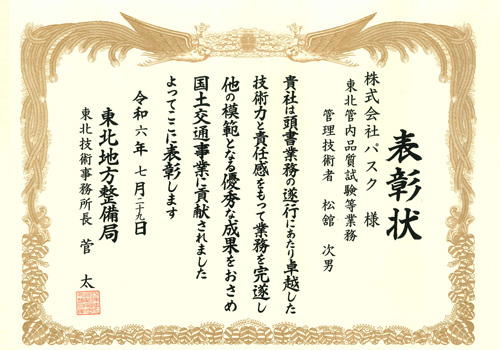 表彰状
株式会社パスク 様
東北管内品質試験等業務
管理技術者 松舘 次男
貴社は頭書業務の遂行にあたり卓越した
技術力と責任感をもって業務を完遂し
他の模範となる優秀な成果をおさめ
国土交通事業に貢献されました
よってここに表彰します
令和六年 七月二十九日
東北地方整備局
東北技術事務所長 菅 太